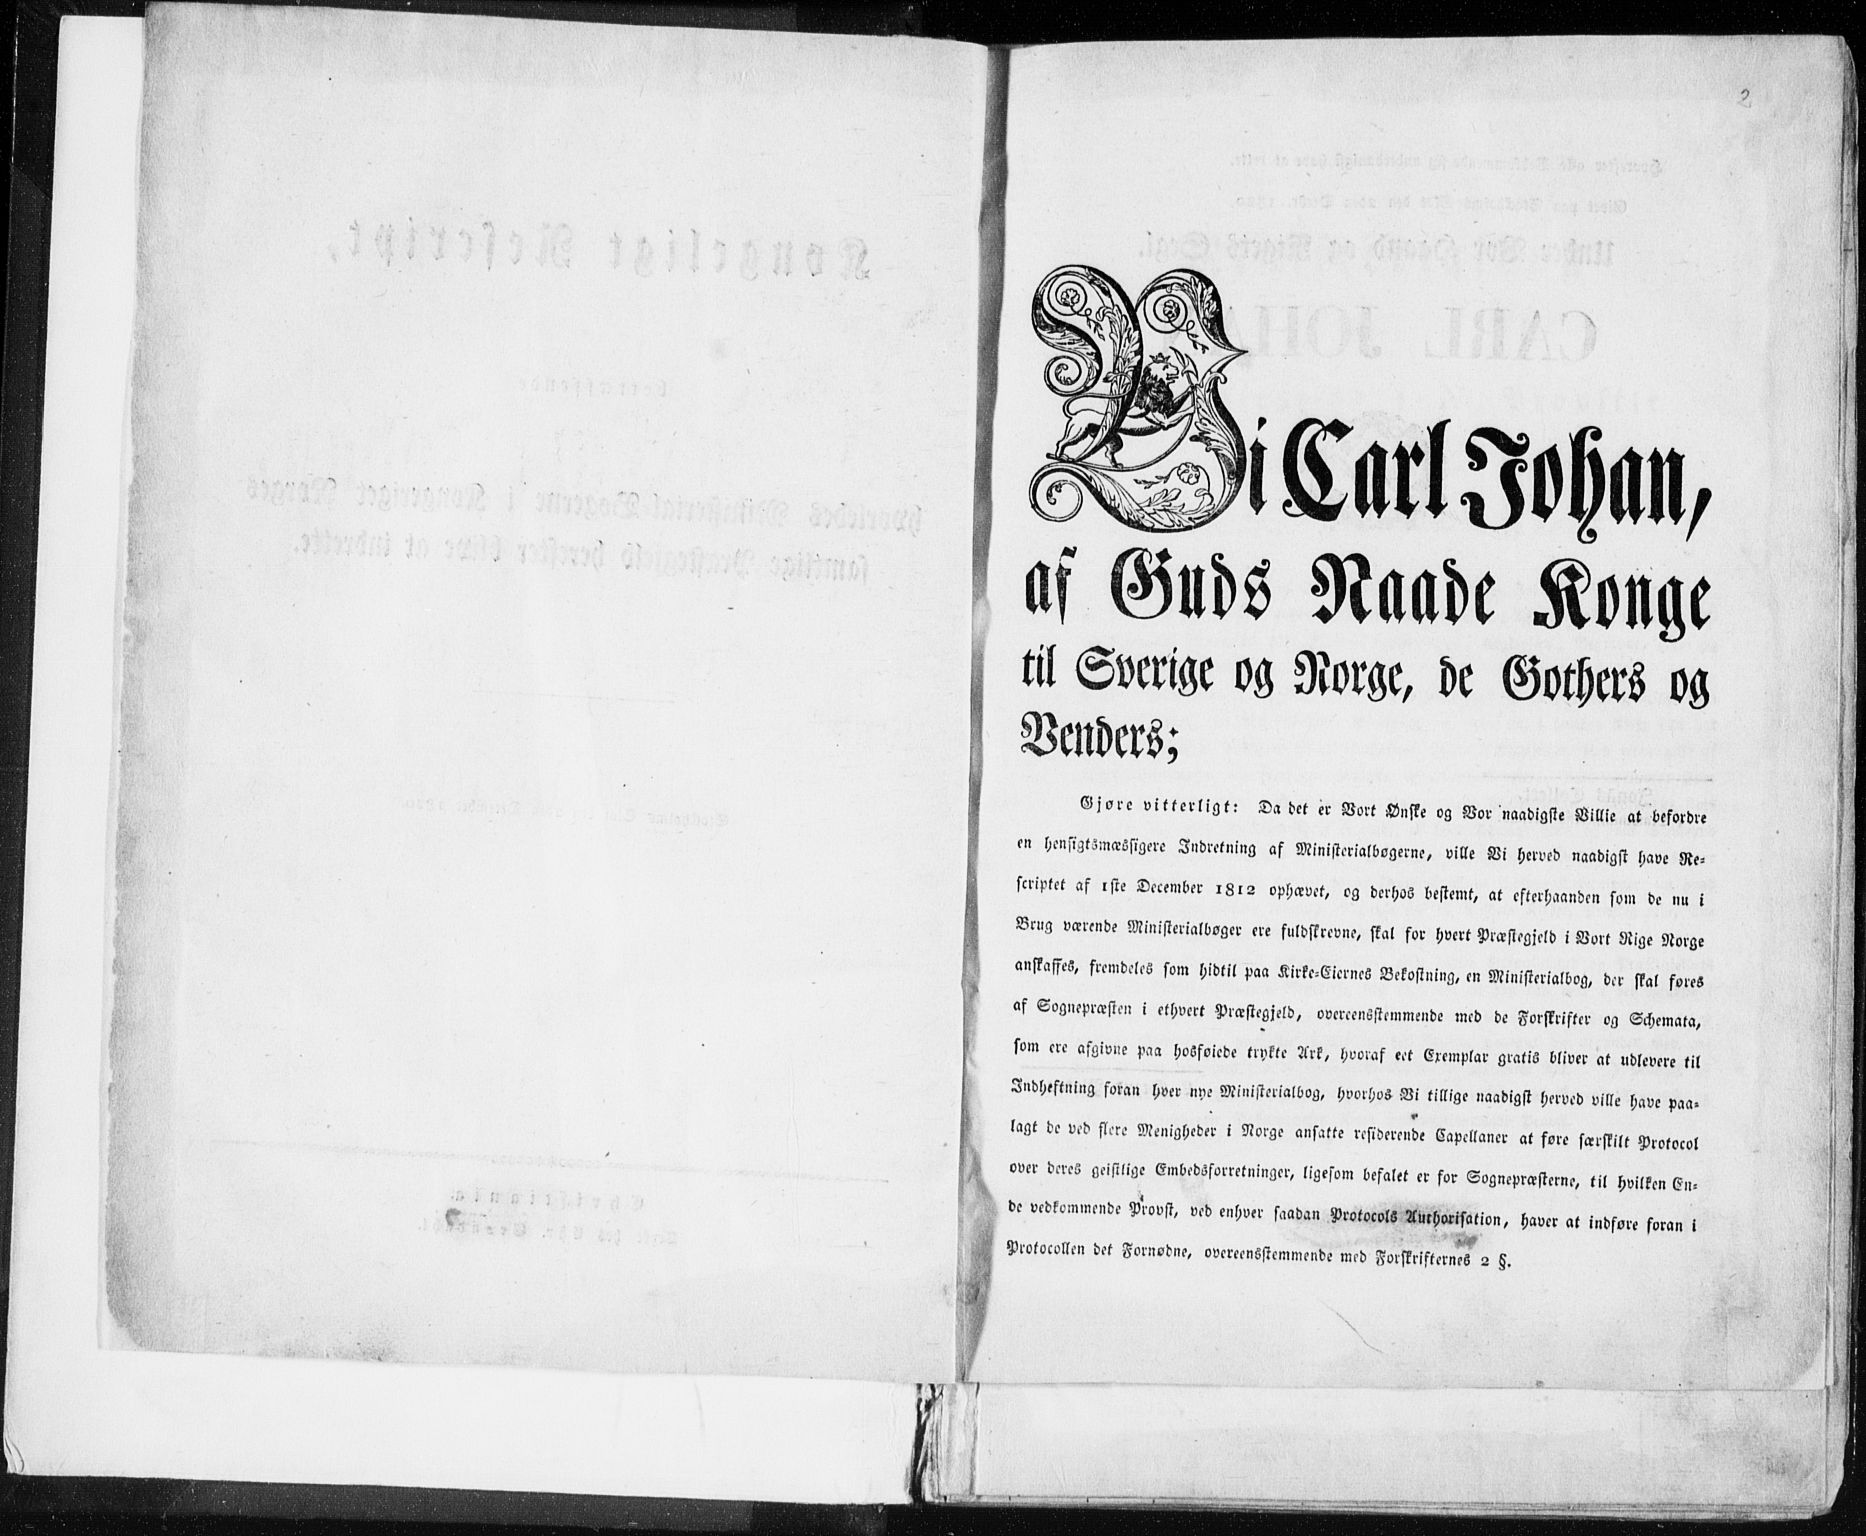 2
Vi Carl Johan,
af Guds Naade Konge
til Sverige og Norge, de Gothers og
Venders;
Gjøre vitterligt: Da det er Vort Ønske og Vor naadigste Villie at befordre
en hensigtsmæssigere Indretning af Ministerialbøgerne, ville Vi herved naadigst have Re=
scriptet af 1ste December 1812 ophævet, og derhos bestemt, at efterhaanden som de nu i
Brug værende Ministerialbøger ere fuldskrevne, skal for hvert Præstegjeld i Vort Rige Norge
anskaffes, fremdeles som hidtil paa Kirke=Eiernes Bekostning, en Ministerialbog, der skal føres
af Sognepræsten i ethvert Præstegjeld, overeensstemmende med de Forskrifter og Schemata,
som ere afgivne paa hosføiede trykte Ark, hvoraf eet Exemplar gratis bliver at udlevere til
Indheftning foran hver nye Ministerialbog, hvorhos Vi tillige naadigst herved ville have paa=
lagt de ved flere Menigheder i Norge ansatte residerende Capellaner at føre særskilt Protocol
over deres geistlige Embedsforretninger, ligesom befalet er for Sognepræsterne, til hvilken En=
de vedkommende Provst, ved enhver saadan Protocols Authorisation, haver at indføre foran i
Protocollen det Fornødne, overeensstemmende med Forskrifternes 2 §.